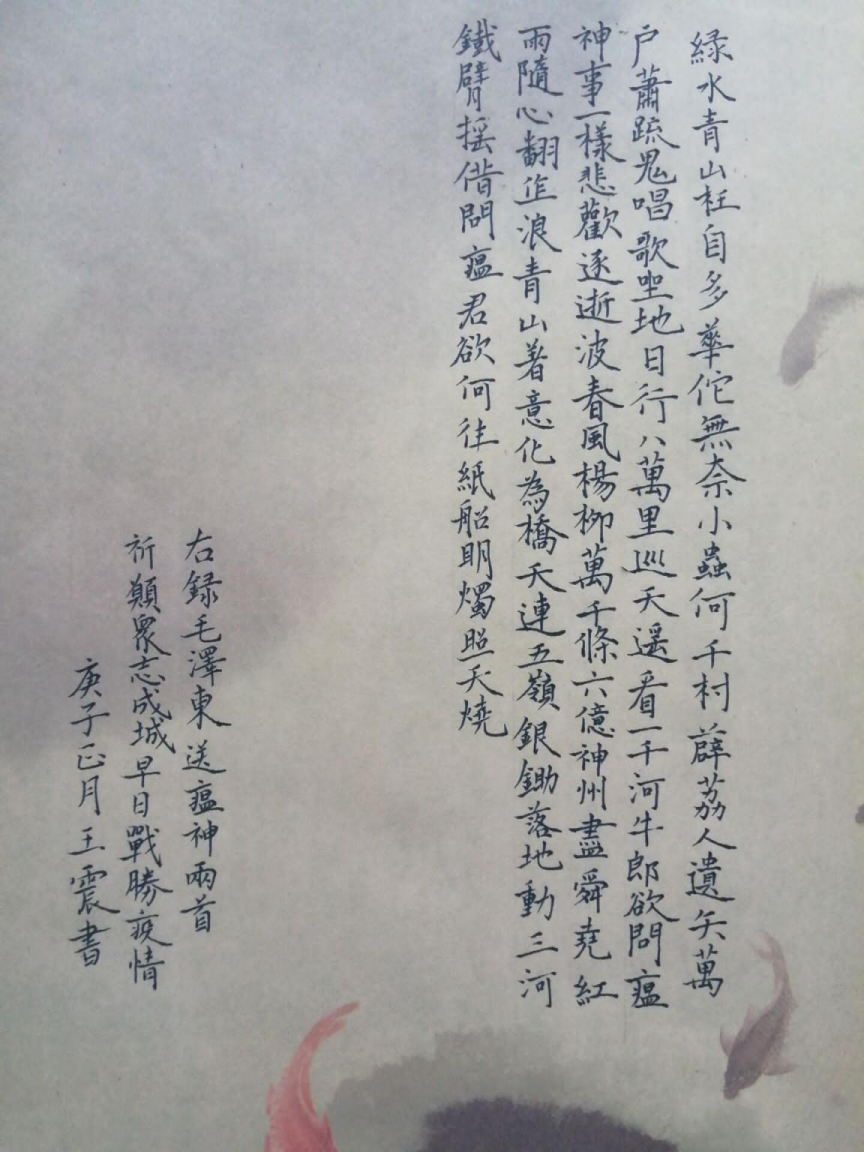 緑水青山枉自多華佗無奈小蟲何千村薜荔人遺矢萬
户蕭疏鬼唱歌坐地日行八萬里巡天遥看一千河牛郎欲問瘟
神事一樣悲歡逐逝波春風楊柳萬千條六億神州盡舜堯紅
雨隨心翻作浪青山著意化為橋天連五嶺銀鋤落地動三河
鐵臂摇借問瘟君欲何往紙船明燭照天燒
右錄毛澤東送瘟神兩首
祈願衆志成城早日戰勝疫情
庚子正月王震書